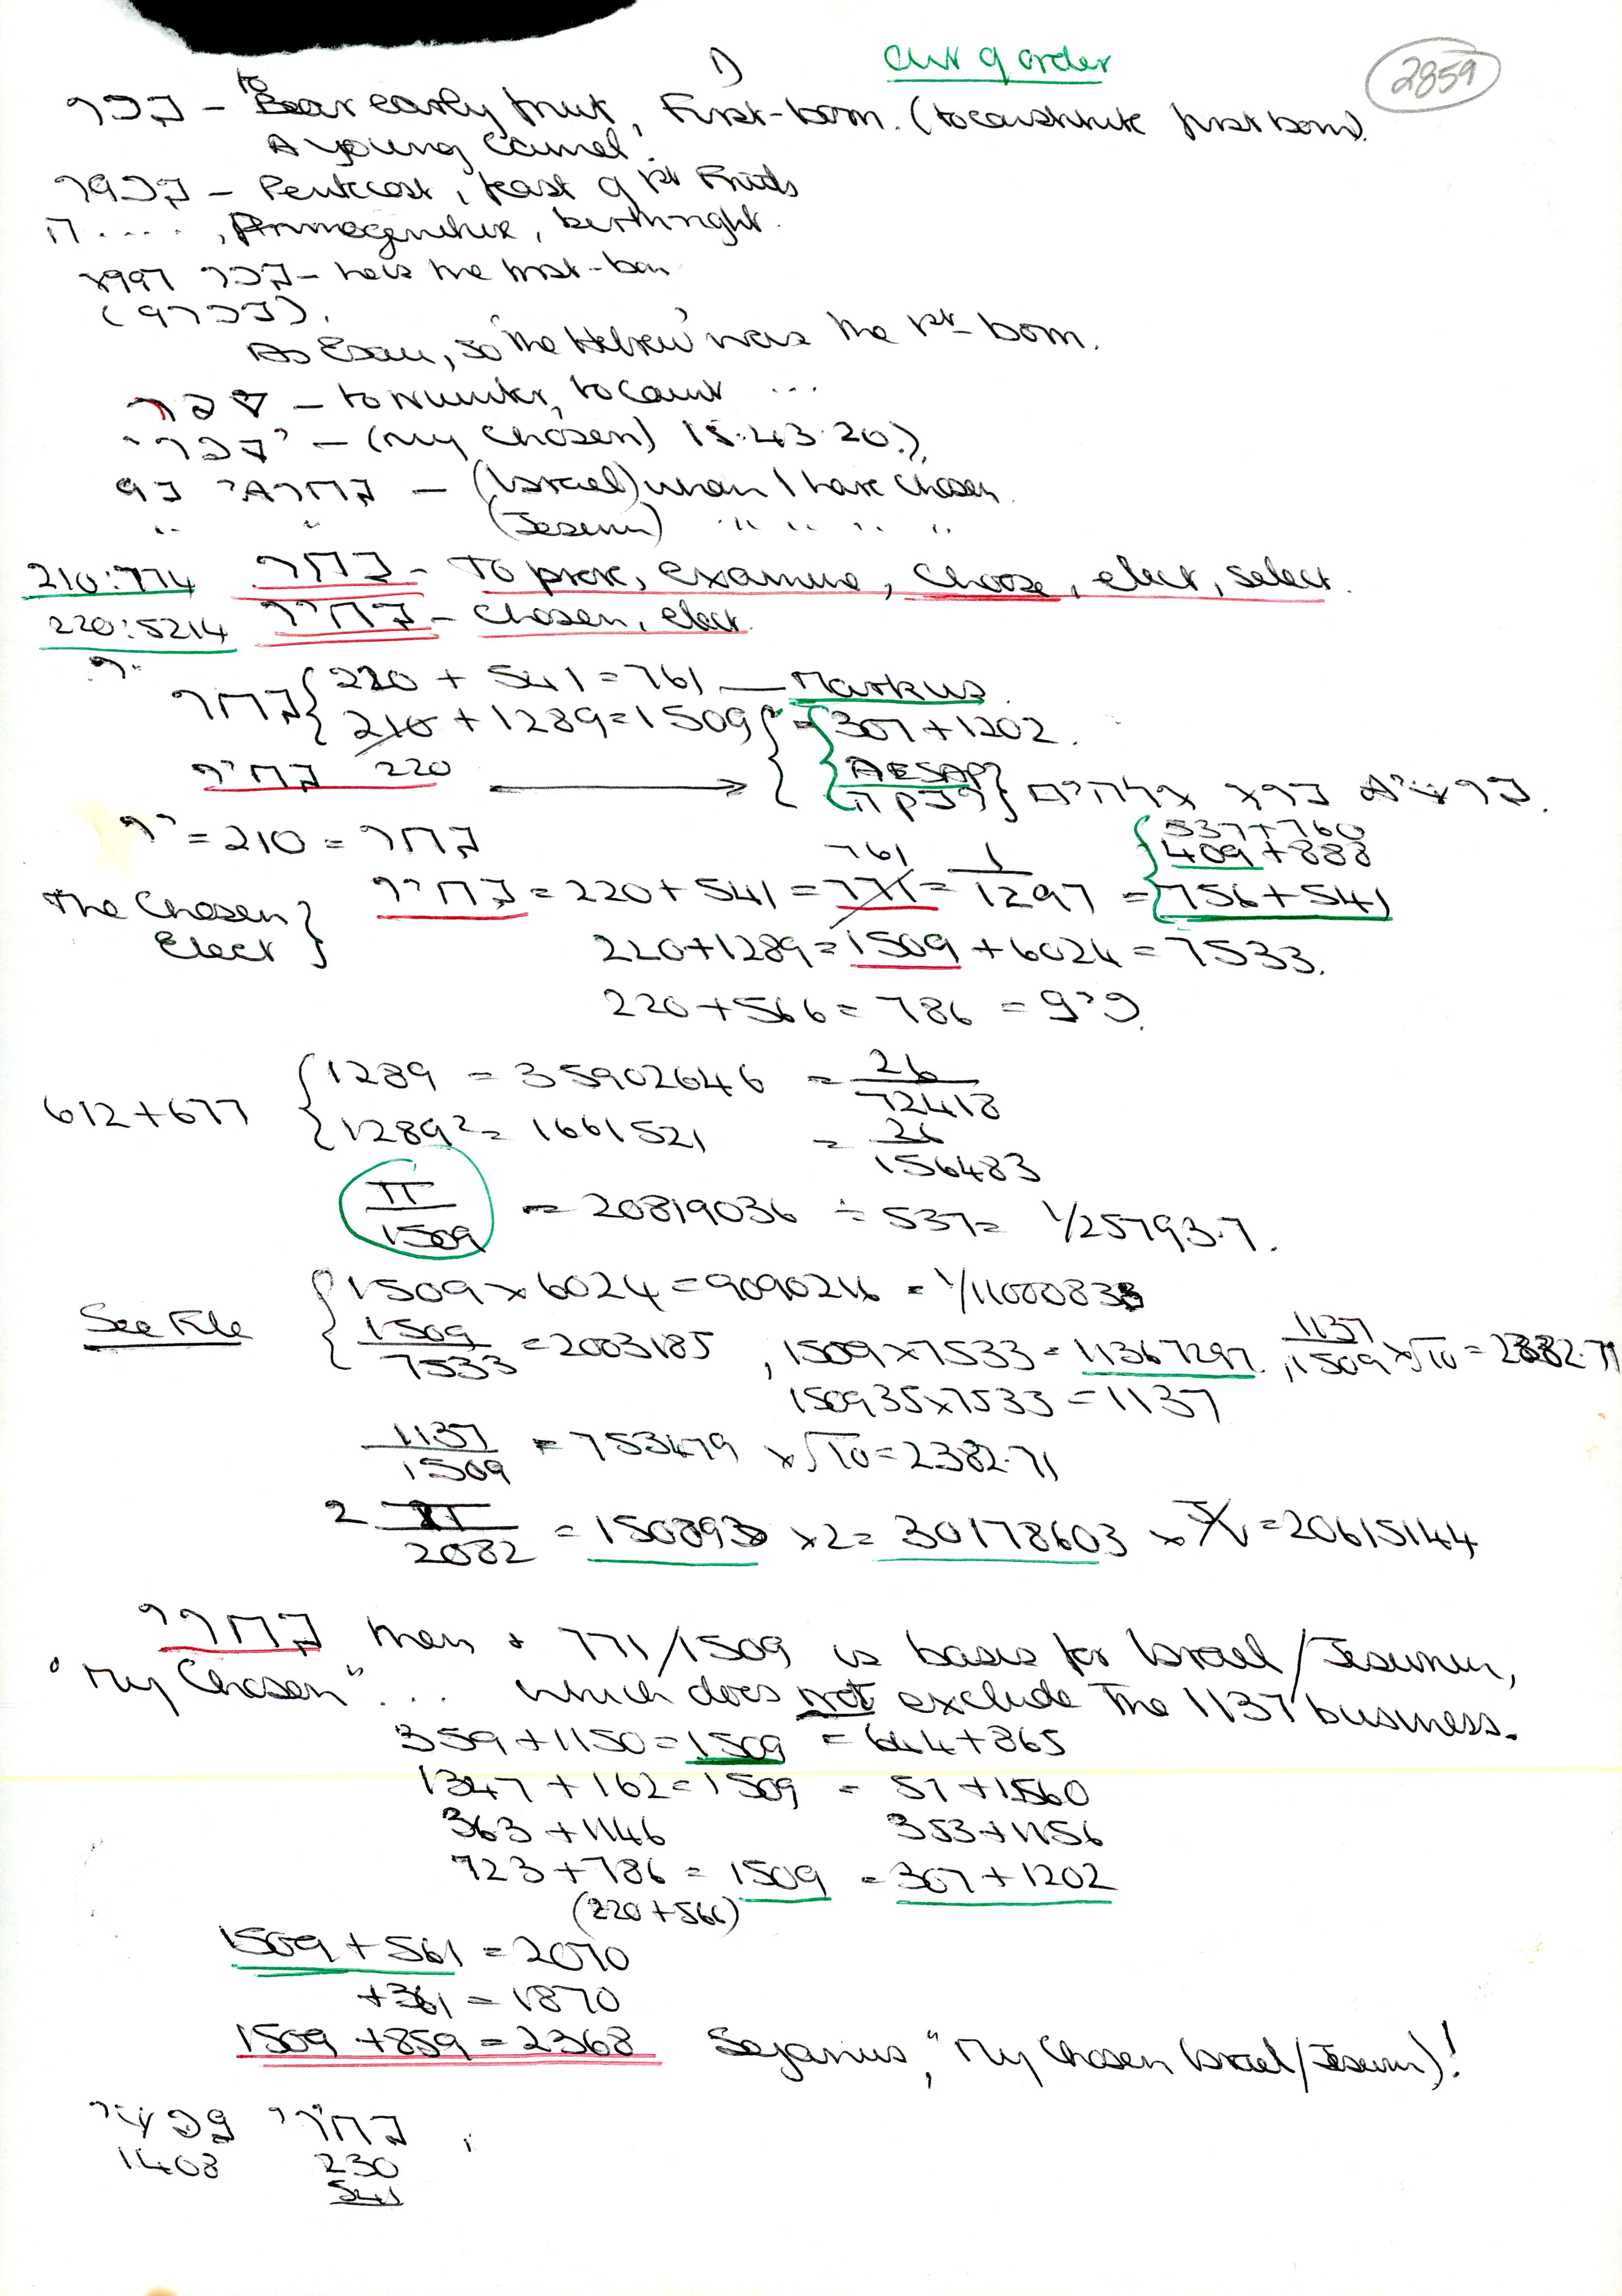 1)
Out of order
2859
to
Bear early fruit, First-born. (to constitute first born).
A young Camel.
Pentecost, feast of 1st Fruits
.... , Primogeniture, birthright.
he is the first-born
As Esau, so 'the Hebrew' was the 1st-born.
to Number, to count ...
(My Chosen) Is. 43.20.)
(Israel) whom I have chosen.
(Jesurun) " " " "
210:774 בחר - To prove, examine, choose, elect, select.
220:5214 בחיר - Chosen, elect.
בחר { 220 + 541 = 761 — Markus.
210 + 1289 = 1509 } = { 307 + 1202.
בחיר 220
AESAP
= 210 = בחר
The Chosen Elect } בחיר = 220 + 541 = 771 761 = 1/1297 = { 537+760
409 + 888
756 + 541
220+1289 = 1509 + 6024 = 7533.
220+566 = 786 =
612+677 { 1289 = 35902646 = 26/72418
1289² = 1661521 = 26/156483
π/1509 = 20819036 ÷ 537 = 1/25793.7.
See File { 1509 x 6024 = 9090216 = 1/11000833
1509/7533 = 2003185 , 1509 x 7533 = 11367297. , 1137/1509 x √10 = 2382.71
150935 x 7533 = 1137
1137/1509 = 753479 x √10 = 2382.71
2 π/2082 = 150893 x 2 = 30178603 x = 20615144
בחרי then & 771/1509 is basis for Israel/Jesurun,
"My Chosen" ... which does not exclude the 1137 business.
359 + 1150 = 1509 = 644 + 865
1347 + 162 = 1509 = 51 + 1560
363 + 1146 353 + 1156
723 + 786 = 1509 = 307 + 1202
(220 + 566)
1509 + 561 = 2070
+361 = 1870
1509 + 859 = 2368 Sejanus, "My Chosen Israel/Jesurun)!
בחרי
1408 230
541